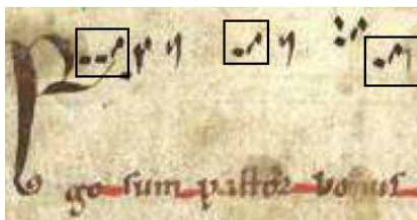 Pgo sum pastor bonus